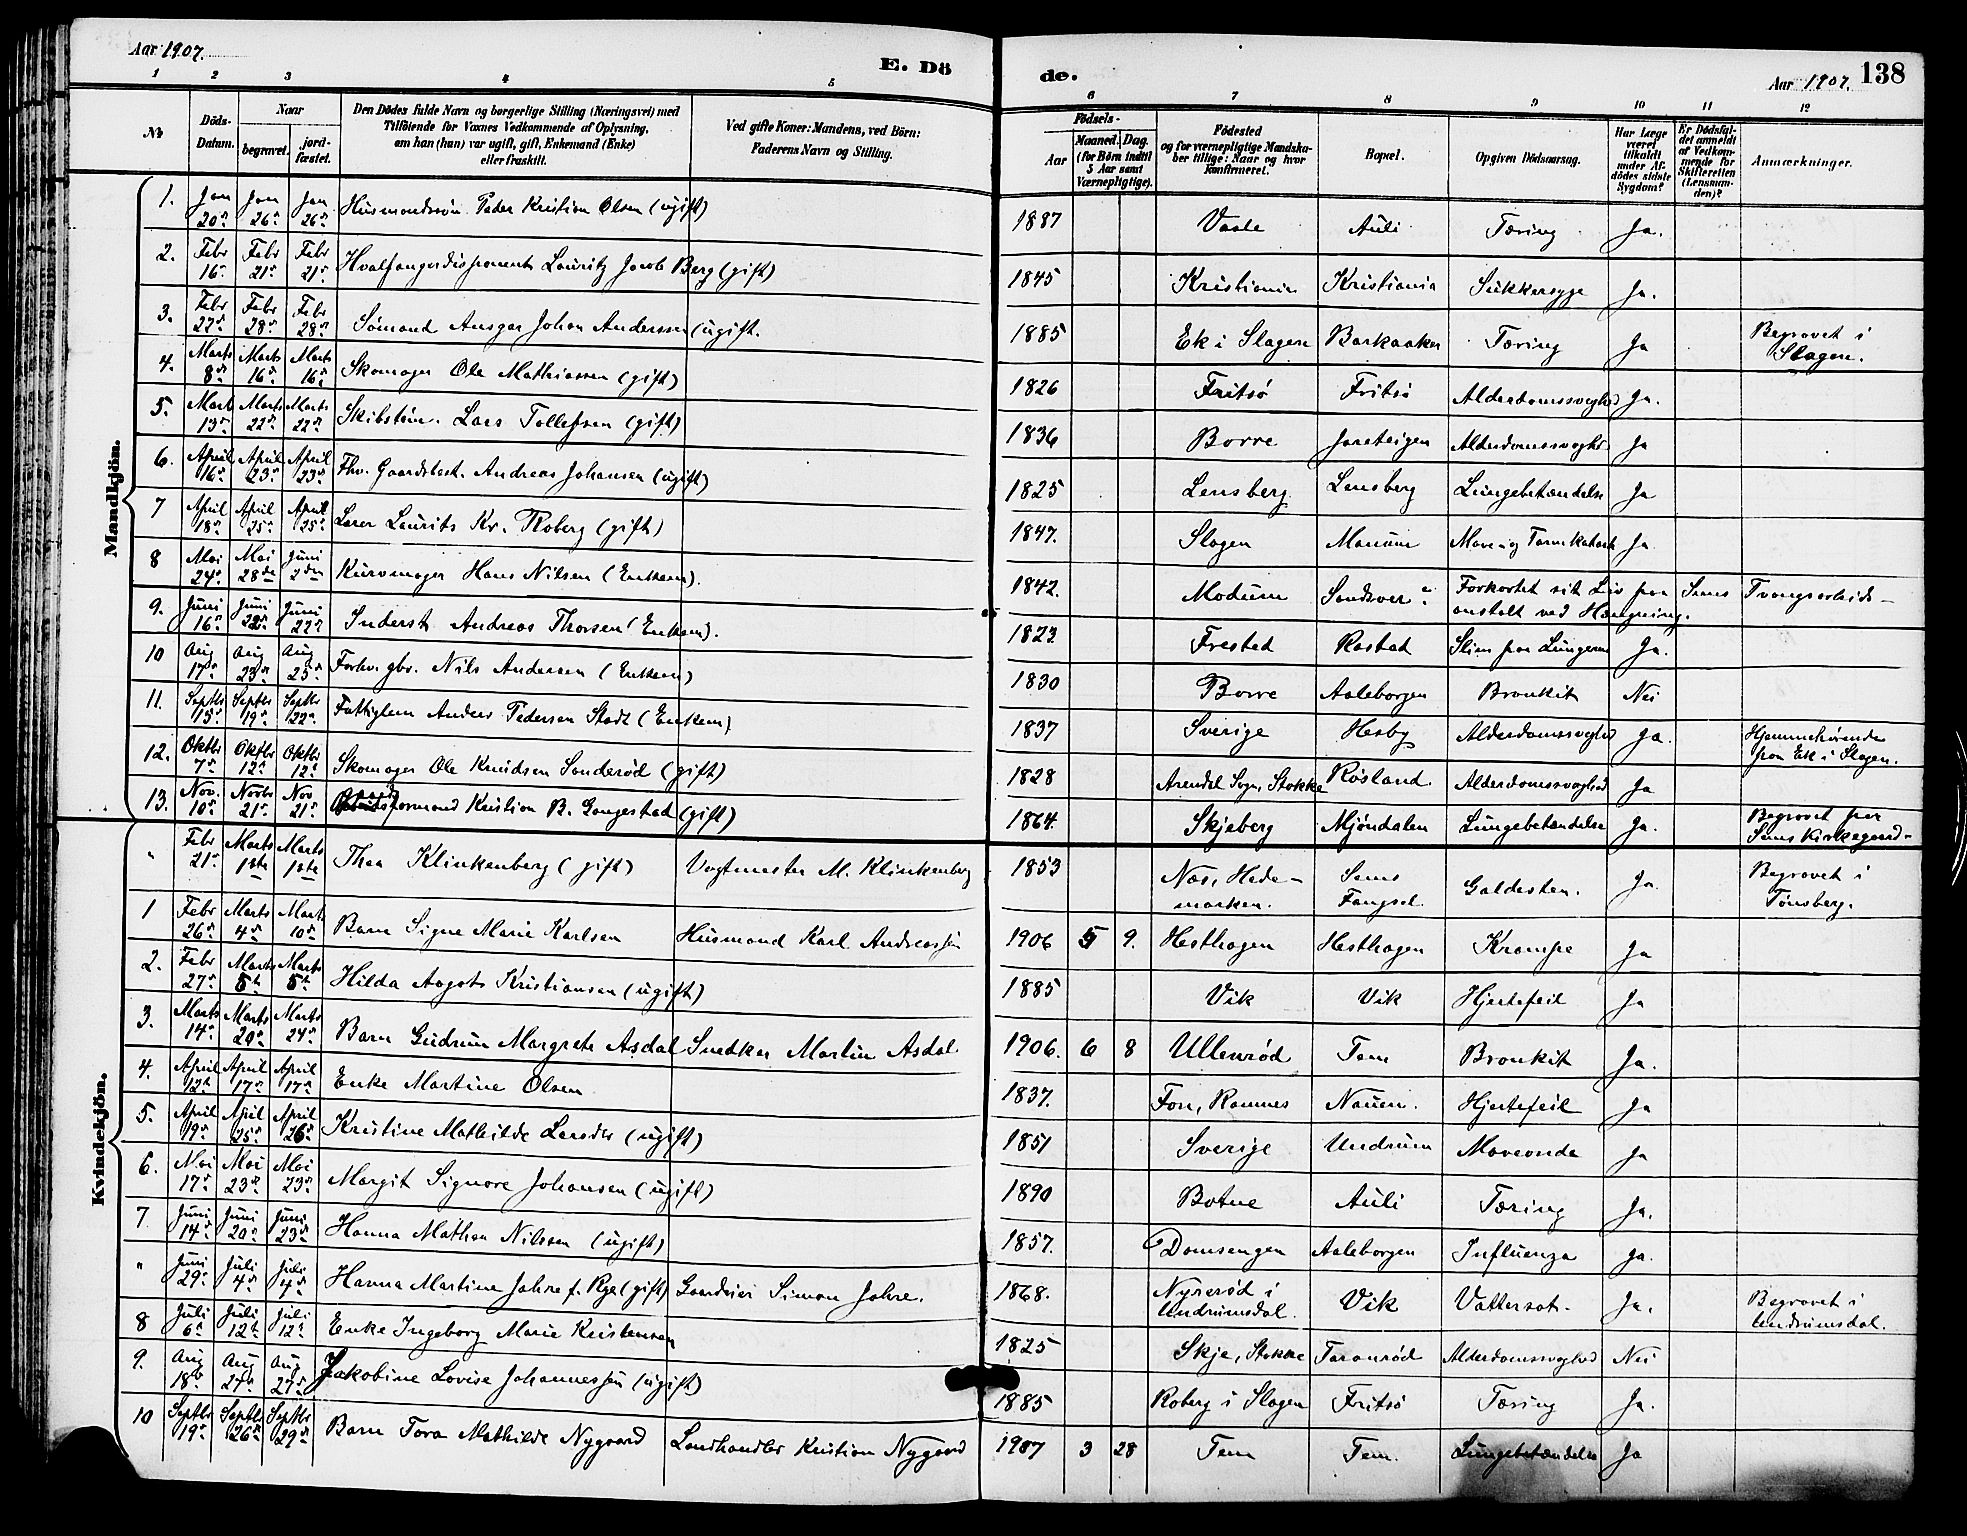 Aar 1907.
E. Dö
de.
Aar 1907.
138
1 2 3 4 5 6 7 8 9 10 11 12
No
Döds-
Datum.
Naar
begravet.
jord-
fæstet.
Den Dödes fulde Navn og borgerlige Stilling (Næringsvei) med
Tilföiende for Voxnes Vedkommende af Oplysning,
om han (hun) var ugift, gift, Enkemand (Enke)
eller fraskilt.
Ved gifte Koner: Mandens, ved Börn:
Faderens Navn og Stilling.
Födsels-
Aar
Maaned. Dag.
(for Börn indtil
5 Aar samt
Værnepligtige).
Födested
og for værnepligtige Mandska-
ber tillige: Naar og hvor
konfirmeret.
Bopæl.
Opgiven Dödsaarsag.
Har Læge
været
tilkaldt
under Af-
dödes sidste
Sygdom?
Er Dödsfal-
det anmeldt
af Vedkom-
mende for
Skifteretten
(Lensman-
den)?
Anmærkninger.
Mandkjön.
1. Jan 20de Jan 26de Jan 26de Husmandssøn Peder Kristian Olsen (ugift) 1887 Vaale Auli Tæring Ja.
2. Febr 16de Febr 21de Febr 21de Hvalfangerdisponent Lauritz Jacob Berg (gift) 1845 Kristiania Kristiania Sukkersyge Ja.
3. Febr 22de Febr 28de Febr 28de Sømand Ansgar Johan Anderssen (ugift. 1885 Ek i Slagen Barkaaker Tæring Ja Begravet i Slagen.
4. Marts 8de Marts 16de Marts 16de Skomager Ole Mathiassen (gift) 1826 Fritsø Fritsø Alderdomssvaghed Ja.
5. Marts 13de Marts 22de Marts 22de Skibstøm. Lars Tollefsen (gift) 1836 Borre Jareteigen Alderdomssvaghed Ja
6. April 16de April 23de April 23de Fhv. Gaardsbest. Andreas Johansen (ugift) 1825 Lensberg Lensberg Lungebetændelse Ja
7 April 18de April 25de April 25de Lærer Laurits Kr. Roberg (gift) 1847. Slagen Manum Mave og Tarmkatarh Ja
8 Mai 24de Mai 28de Juni 2den Kurvmager Hans Nilsen (Enkem). 1842. Modum Sandsver Forkortet sit Liv paa Sems Tvangsarbeids-
anstalt ved Hængning.
9. Juni 16de Juni 22de Juni 22de Inderst Andreas Thorsen (Enkem). 1823 Frested Rostad Slim paa Lungerne Ja.
10 Aug 17de Aug 23de Aug 25de Forhv. gbr. Nils Andersen (Enkem) 1830 Borre Aaleborgen Bronkit Nei
11. Septbr 15de Septbr 19de Septbr 22de Fattiglem Anders Pedersen Stadt (Enkem) 1837 Sverige Hesby Alderdomssvaghed Ja. Hjemmehørende fra Ek i Slagen.
12. Oktbr 7de Oktbr 12te Oktbr 12te Skomager Ole Knudsen Sonderød (gift) 1828 Arendal Sogn, Stokke Røsland Alderdomssvaghed Ja
13. Nov. 10de Novbr 21de Nov 21de formand Kristian B. Gangestad (gift) 1864. Skjeberg Mjøndalen Lungebetændelse Ja. Begravet paa Sems Kirkegaard-
Kvindekjön.
" Febr 21de Marts 1ste Marts 1ste Thea Klinkenberg (gift) Vagtmester M. Klinkenberg 1853 Næs, Hede-marken. Sems Fængsel Galdesten. Ja. Begravet i Tønsberg.
1 Febr 26de Marts 4de Marts 10de Barn Signe Marie Karlsen Husmand Karl Andreassen 1906 5 9. Hesthagen Hesthagen Krampe Ja
2. Febr 27de Marts 5te Marts 5te Hilda Aagots Kristiansen (ugift) 1885 Vik Vik Hjertefeil Ja
3. Marts 14de Marts 20de Marts 24de Barn Gudrun Margrete Asdal Snedker Martin Asdal 1906. 6 8 Ullenrød Tem Bronkit Ja.
4. April 12te April 17de April 17de Enke Martine Olsen 1837. Fon, Ramnes Nauen. Hjertefeil Ja
5. April 19de April 25de April 26de Kristine Mathilde Larsdtr (ugift) 1851 Sverige Undrum Maveonde Ja
6. Mai 17de Mai 23de Mai 23de Margit Signore Johansen (ugift) 1890 Botne Auli Tæring Ja.
7 Juni 14de Juni 20de Juni 23de Hanna Mathea Nilssen (ugift) 1857. Domsengen Aaleborgen Influenza Ja.
" Juni 29de Juli 4de Juli 4de Hanna Martine Jahre f. Rye (gift) Gaardeier Simon Jahre. 1868. Nyrerød i Undrumsdal. Vik Vattersot. Ja. Begravet i Undrumsdal.
8 Juli 6te Juli 12te Juli 12te Enke Ingeborg Marie Kristensen 1825 Skje, Stokke Taranrød Alderdomssvaghed Nei
9. Aug 18de Aug 27de Aug 27de Jakobine Lovise Johannessen (ugift) 1885 Roberg i Slagen Fritsø Tæring Ja.
10 Septbr 19de Septbr 26de Septbr 29de Barn Tora Mathilde Nygaard Landhandler Kristian Nygaard 1907 3 28 Tem Tem. Lungebetændelse Ja